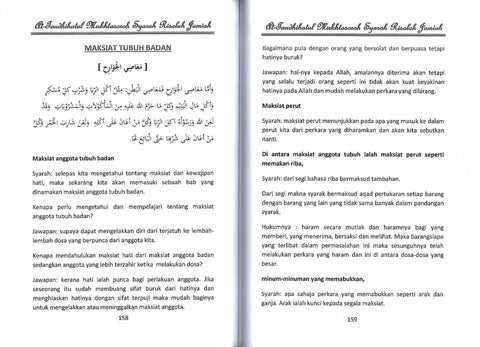 At-Taudhihatul Mukhtasaroh Syarah Risalah Jamiah
MAKSIAT TUBUH BADAN
[ مَعَاصِي الْجَوَارِحِ ]
وَأَمَّا مَعَاصِي الْجَوَارِحِ فَمَعَاصِي الْبَطْنِ: مِثْلُ أَكْلِ الرِّبَا وَشُرْبِ كُلِّ مُسْكِرٍ
وَأَكْلِ مَالِ الْيَتِيْمِ وَكُلِّ مَا حَرَّمَ اللهُ عَلَيْهِ مِنَ الْمَأْكُوْلَاتِ وَالْمَشْرُوْبَاتِ وَقَدْ
لَعَنَ اللهُ وَرَسُوْلُهُ آكِلَ الرِّبَا وَكُلَّ مَنْ أَعَانَ عَلَى أَكْلِهِ وَلَعَنَ شَارِبَ الْخَمْرِ وَكُلَّ
مَنْ أَعَانَ عَلَى شُرْبِهَا حَتَّى الْبَائِعَ لَهَا.
Maksiat anggota tubuh badan
Syarah: selepas kita mengetahui tentang maksiat dan kewajipan
hati, maka sekarang kita akan memasuki sebuah bab yang
dinamakan maksiat anggota tubuh badan.
Kenapa perlu mengetahui dan mempelajari tentang maksiat
anggota tubuh badan?
Jawapan: supaya dapat mengelakkan diri dari terjatuh ke lembah-
lembah dosa yang berpunca dari anggota kita.
Kenapa mendahulukan maksiat hati dari maksiat anggota badan
sedangkan anggota yang lebih terzahir ketika melakukan dosa?
Jawapan: kerana hati ialah punca bagi perlakuan anggota. Jika
seseorang itu sudah membuang sifat buruk dari hatinya dan
menghiaskan hatinya dengan sifat terpuji maka mudah baginya
untuk mengelakkan atau meninggalkan maksiat anggota.
158
At-Taudhihatul Mukhtasaroh Syarah Risalah Jamiah
Bagaimana pula dengan orang yang bersolat dan berpuasa tetapi
hatinya buruk?
Jawapan: hal-nya kepada Allah, amalannya diterima akan tetapi
yang selalu terjadi orang ini tidak akan kuat akan keyakinan
hatinya pada Allah dan mudah melakukan perkara yang dilarang.
Maksiat perut
Syarah: maksiat perut menunjukkan pada apa yang masuk ke dalam
perut kita dari perkara yang diharamkan dan akan kita sebutkan
nanti.
Di antara maksiat anggota tubuh ialah maksiat perut seperti
memakan riba,
Syarah: dari segi bahasa riba bermaksud tambahan.
Dari segi makna syarak bermaksud aqad pertukaran setiap barang
dengan barang yang lain yang tidak sama banyak dalam pandangan
syarak.
Hukumnya : haram secara mutlak dan haramnya bagi yang
memberi, yang menerima, bersaksi dan melihat. Maka barangsiapa
yang terlibat dalam permasalahan ini maka sesungguhnya telah
melakukan perkara yang haram dan ini di antara dosa-dosa yang
besar.
minum-minuman yang memabukkan,
Syarah: apa sahaja perkara yang memabukkan seperti arak dan
ganja. Arak ialah kunci kepada segala maksiat.
159